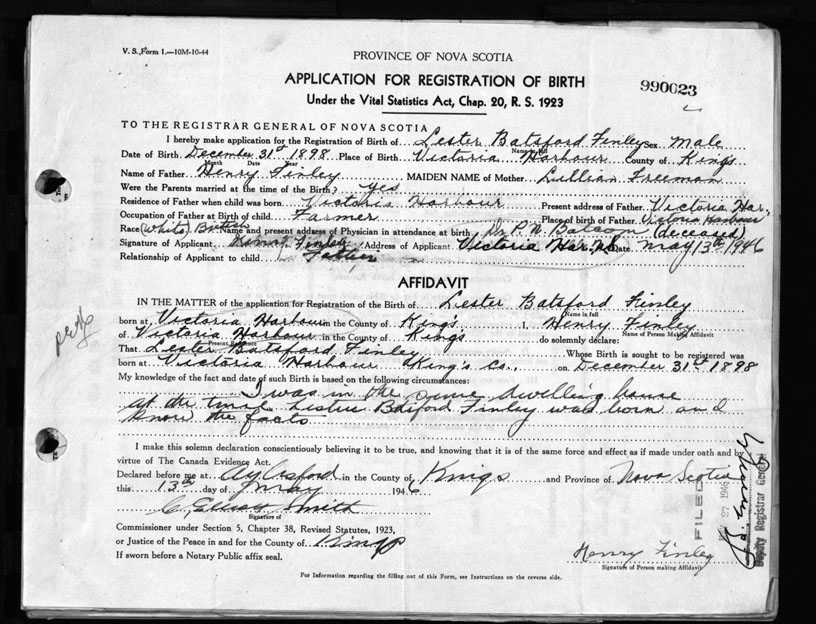 V. S., Form 1.—10M-10-44
PROVINCE OF NOVA SCOTIA
APPLICATION FOR REGISTRATION OF BIRTH
990023
Under the Vital Statistics Act, Chap. 20, R. S. 1923
TO THE REGISTRAR GENERAL OF NOVA SCOTIA
I hereby make application for the Registration of Birth of Lester Batsford Finley Sex Male
Name in full
Date of Birth December 31st 1898 Place of Birth Victoria Harbour County of King's
Month Date Year
Name of Father Henry Finley MAIDEN NAME of Mother Lullian Freeman
Were the Parents married at the time of the Birth? Yes
Residence of Father when child was born Victoria Harbour Present address of Father Victoria Har.
Occupation of Father at Birth of child Farmer Place of birth of Father Victoria Harbour
Race (White) British Name and present address of Physician in attendance at birth Dr P. N. Balcom (deceased)
Signature of Applicant Finley Address of Applicant Victoria Har. N.S. Date May 13th 1946
Relationship of Applicant to child Father
AFFIDAVIT
IN THE MATTER of the application for Registration of the Birth of Lester Batsford Finley
Name in full
born at Victoria Harbour in the County of King's I, Henry Finley
Name of Person Making Affidavit
of Victoria Harbour in the County of Kings do solemnly declare:
Present Residence
That Lester Batsford Finley Whose Birth is sought to be registered was
born at Victoria Harbour King's Co., on December 31st 1898
My knowledge of the fact and date of such Birth is based on the following circumstances:
I was in the same dwelling house
at the time Lester Finley was born and
know the facts
I make this solemn declaration conscientiously believing it to be true, and knowing that it is of the same force and effect as if made under oath and by
virtue of The Canada Evidence Act.
Declared before me at Aylesford in the County of Kings and Province of Nova Scotia
this 13th day of May 1946
C. Elliott Smith
Signature of
Commissioner under Section 5, Chapter 38, Revised Statutes, 1923,
or Justice of the Peace in and for the County of Kings
If sworn before a Notary Public affix seal.
Henry Finley
Signature of Person making Affidavit
For Information regarding the filling out of this Form, see Instructions on the reverse side.
FILED
27 1946
Deputy Registrar General